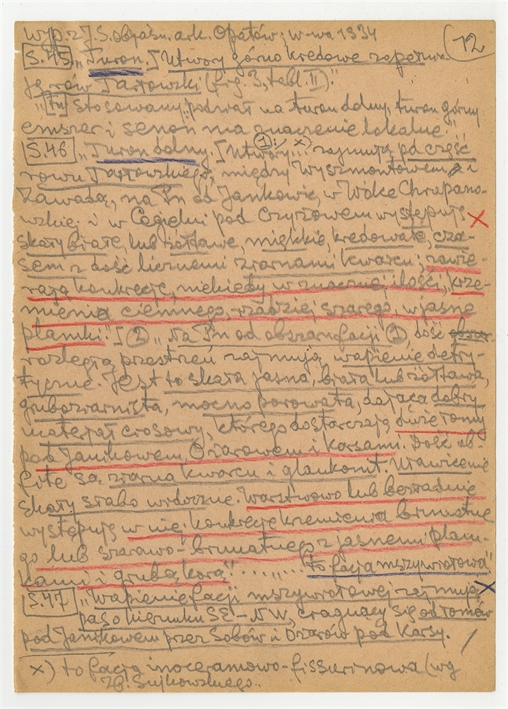 Wyp. z J. S. objaśn. ark. Opatów; W-wa 1934
12
[S.45] „Turon. [Utwory górno kredowe zapełnia-
ją rów Tarłowski (fig. 3, tabl. II)."
„[tu] Stosowany podział na turon dolny, turon górny
emszer i senon ma znaczenie lokalne."
[S.46] „Turon dolny. [Utwory ① x) zajmują pd część
rowu Tarłowskiego, między Wyszmontowem i
Zawadą, na Pn od Jankowic, w Wólce Chrapano-
wskiej i w Cegielni pod Czyżowem występują
skały białe lub żółtawe, miękkie, kredowate, cza-
sem z dość licznemi ziarnami kwarcu; zawie-
rają konkrecje, niekiedy w znacznej ilości, krze-
mienia ciemnego, rzadziej szarego w jasne
plamki". [② „Na Pn od obszaru facji ①, dość
rozległą przestrzeń zajmują wapienie detry-
tyczne. Jest to skała jasna, biała lub żółtawa,
gruboziarnista, mocno porowata, dająca dobry
materjał ciosowy, którego dostarczają dwie łomy
pod Janikowem, Ożarowem i Karsami. Dość ob-
fite są ziarna kwarcu i glaukonit. Uławicenie
skały słabo widoczne. Warstwowo lub bezładnie
występują w niej konkrecje krzemienia brunatne-
go lub szarawo-brunatnego z jasnemi plam-
kami i grubą korą" ........ to facja mszywiołowa"
[S.47] „Wapienie facji mszywiołowej zajmują
pas o kierunku SE-NW, ciągnący się od łomów
pod Janikowem przez Sobów i Ożarów pod Karsy.
x) to facja inoceramowo-fissurinowa (wg
Zb. Sujkowskiego.